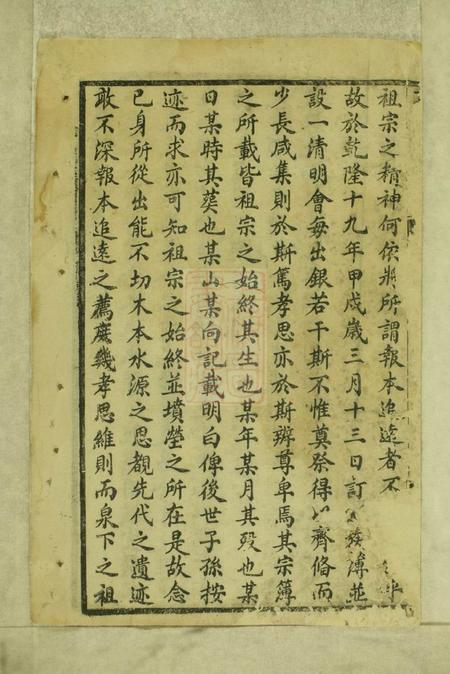 祖宗之精神何依將所謂報本追遠者不乎
故於乾隆十九年甲戌歲三月十三日訂族溥並
設一清明會每出銀若干斯不惟奠祭得以齊俻而
少長咸集則於斯篤孝思亦於斯辨尊卑焉其宗簿
之所載皆祖宗之始終其生也某年某月其殁也某
日某時其葬也某山某向記載明白俾後世子孫按
迹而求亦可知祖宗之始終並墳塋之所在是故念
已身所從出能不切木本水源之思觀先代之遺迹
敢不深報本追遠之薦庶幾孝思維則而泉下之祖